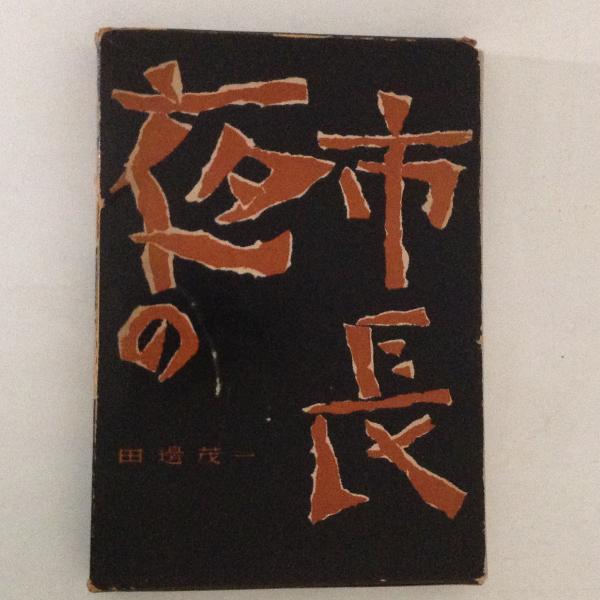 夜の
市長
田邊茂一